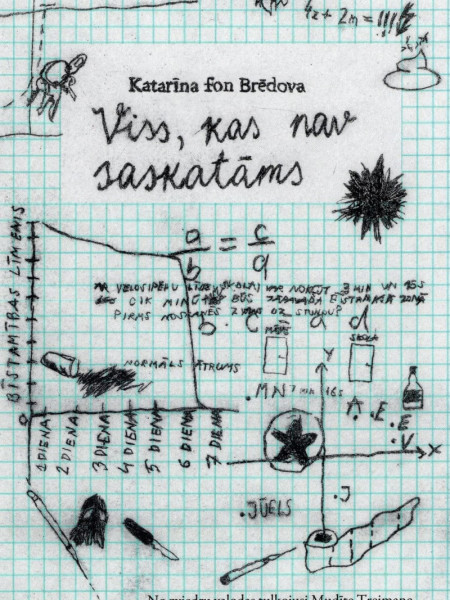 4z + 2m =
Katarīna fon Brēdova
Viss, kas nav
saskatāms
BĪSTAMĪBAS LĪMENIS
a = c
b d
AR VELOSIPĒDU LĪDZ SKOLAI VAR NOKĻŪT 3 MIN UN 16S
CIK MINŪTES BŪS JĀPAVADA BĪSTAMAJĀ ZONĀ
PIRMS NOSKANĒS ZVANS UZ STUNDU?
b . c a d
MĀJAS
SKOLA
NORMĀLS ĀTRUMS
Y
. MN 7 MIN 16s
A E
E
V
X
0
1 DIENA
2 DIENA
3 DIENA
4 DIENA
5 DIENA
6 DIENA
7 DIENA
. JŪELS
. J
No zviedru valodas tulkojusi Mudīte Treimane